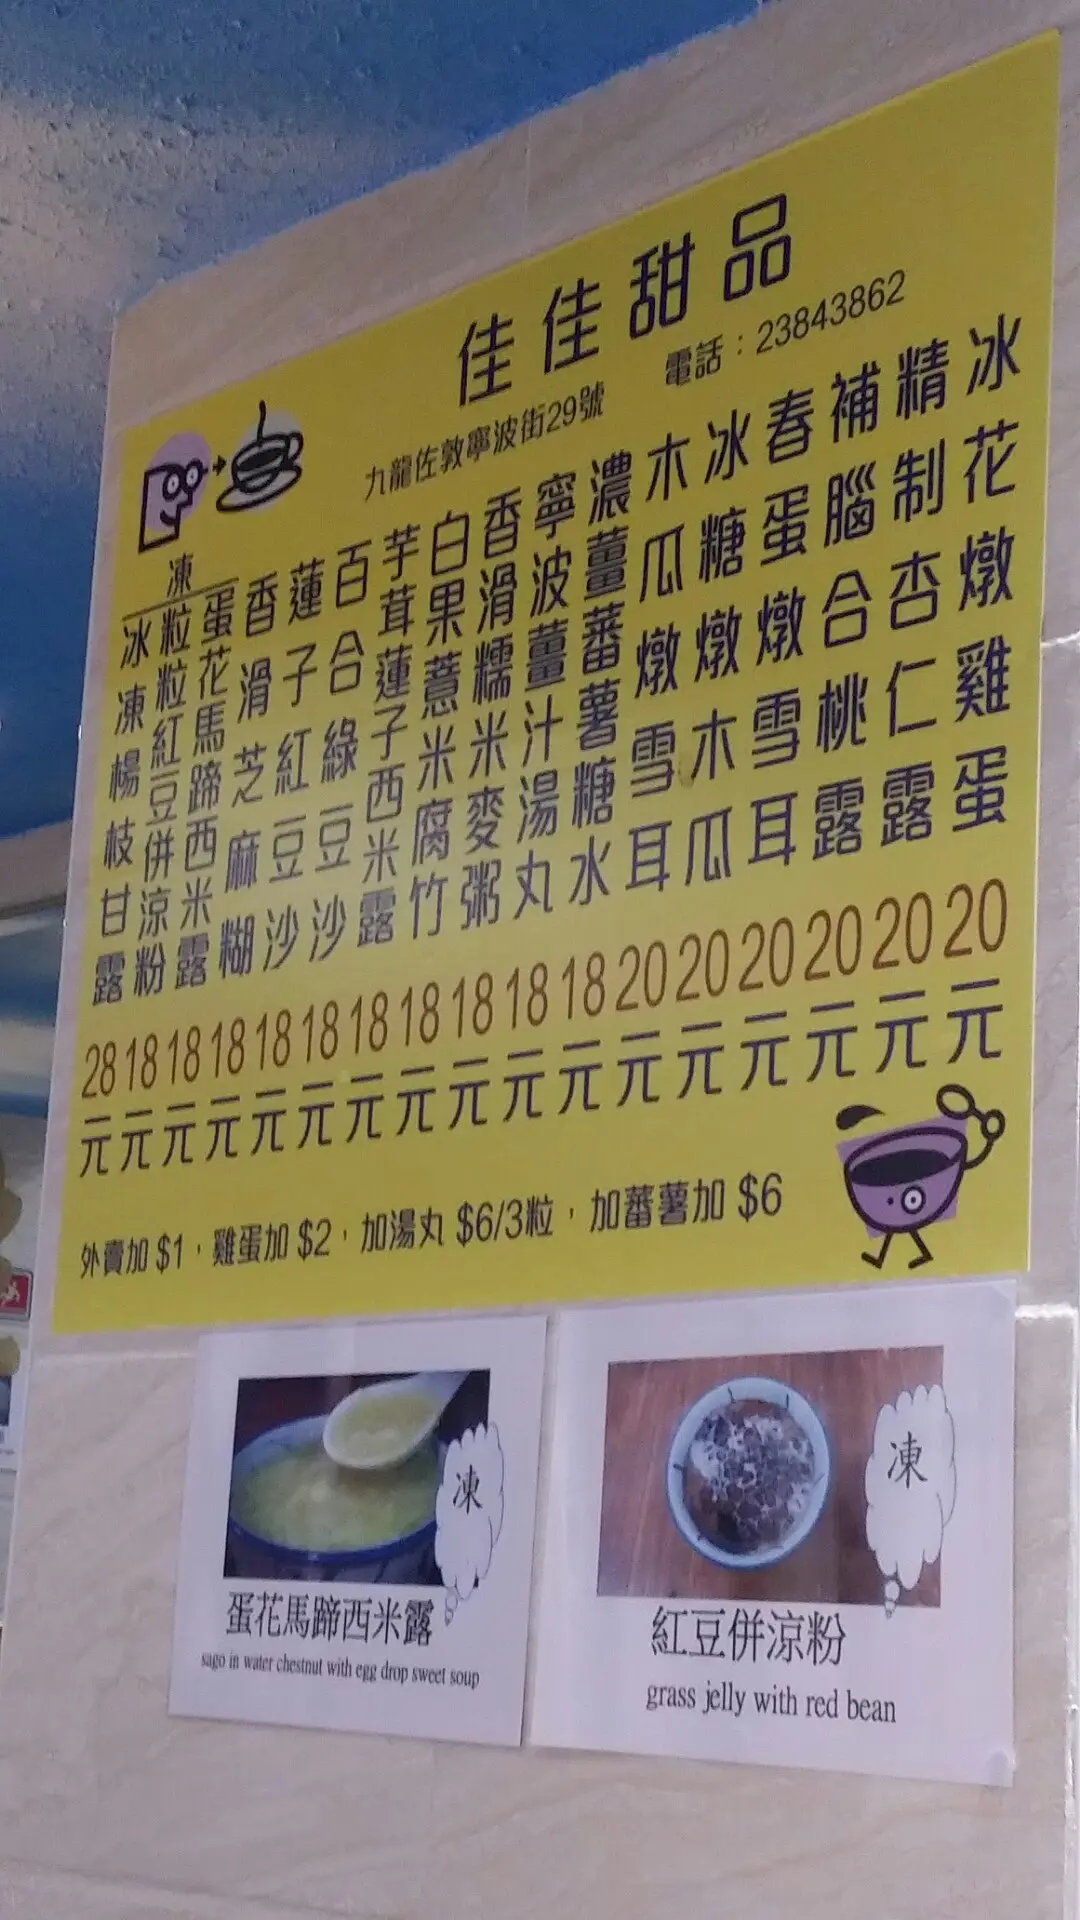 佳佳甜品
九龍佐敦寧波街29號
電話：23843862
冰花燉雞蛋 20元
精制杏仁露 20元
補腦合桃露 20元
春蛋燉雪耳 20元
冰糖燉木瓜 20元
木瓜燉雪耳 20元
濃薑蕃薯糖水 18元
寧波薑汁湯丸 18元
香滑糯米麥粥 18元
白果薏米腐竹 18元
芋茸蓮子西米露 18元
百合綠豆沙 18元
蓮子紅豆沙 18元
香滑芝麻糊 18元
凍
蛋花馬蹄西米露 18元
粒粒紅豆併涼粉 18元
冰凍楊枝甘露 28元
外賣加 $1，雞蛋加 $2，加湯丸 $6/3粒，加蕃薯加 $6
凍
蛋花馬蹄西米露
sago in water chestnut with egg drop sweet soup
凍
紅豆併涼粉
grass jelly with red bean